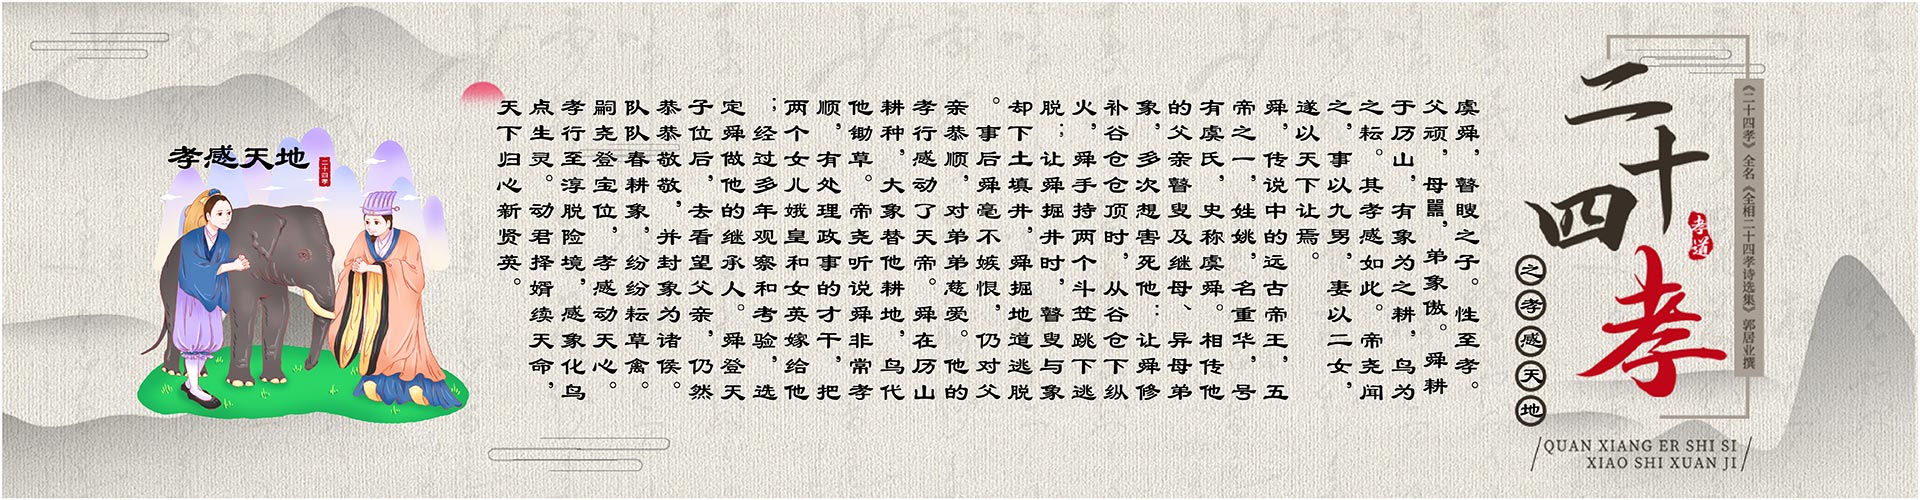 《二十四孝》全名《全相二十四孝诗选集》郭居业撰
二十四孝
孝道
之孝感天地
QUAN XIANG ER SHI SI
XIAO SHI XUAN JI
虞舜，瞽瞍之子。性至孝。
父顽，母嚚，弟象傲。舜耕
于历山，有象为之耕，鸟为
之耘。其孝感如此。帝尧闻
之，事以九男，妻以二女，
遂以天下让焉。
舜，传说中的远古帝王，五
帝之一，姓姚，名重华，号
有虞氏，史称虞舜。相传他
的父亲瞽叟及继母、异母弟
象，多次想害死他：让舜修
补谷仓仓顶时，从谷仓下纵
火，舜手持两个斗笠跳下逃
脱；让舜掘井时，瞽叟与象
却下土填井，舜掘地道逃脱
。事后舜毫不嫉恨，仍对父
亲恭顺，对弟弟慈爱。他的
孝行感动了天帝。舜在历山
耕种，大象替他耕地，鸟代
他锄草。帝尧听说舜非常孝
顺，有处理政事的才干，把
两个女儿娥皇和女英嫁给他
；经过多年观察和考验，选
定舜做他的继承人。舜登天
子位后，去看望父亲，仍然
恭恭敬敬，并封象为诸侯。
队队春耕象，纷纷耘草禽。
嗣尧登宝位，孝感动天心。
孝行至淳脱险境，感象化鸟
点生灵。动君择婿续天命，
天下归心新贤英。
孝感天地
二十四孝